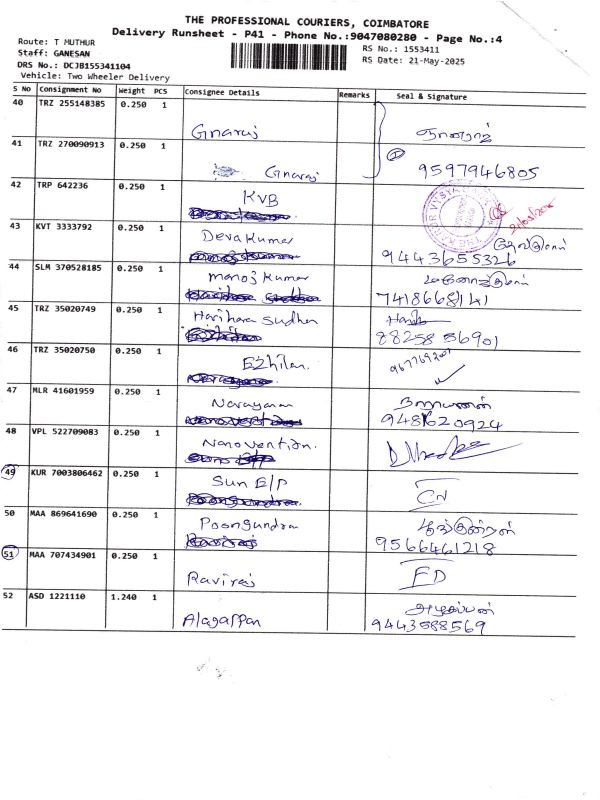 THE PROFESSIONAL COURIERS, COIMBATORE
Delivery Runsheet - P41 - Phone No.:9047080280 - Page No.:4
Route: T MUTHUR
RS No.: 1553411
Staff: GANESAN
RS Date: 21-May-2025
DRS No.: DCJB155341104
Vehicle: Two Wheeler Delivery
S No Consignment No Weight PCS Consignee Details Remarks Seal & Signature
40 TRZ 255148385 0.250 1
Gnaraj ஞானராஜ்
41 TRZ 270090913 0.250 1
Gnaraj 9597946805
42 TRP 642236 0.250 1 KVB
43 KVT 3333792 0.250 1 Devakumar தேவகுமார்
9443655326
44 SLM 370528185 0.250 1 Manoj Kumar மனோஜ்குமார்
7418668141
45 TRZ 35020749 0.250 1 Harihara Sudhan
88258 56901
46 TRZ 35020750 0.250 1 Ezhilan.
47 MLR 41601959 0.250 1 Narayanan நாராயணன்
9486620924
48 VPL 522709083 0.250 1 Nanovention.
49 KUR 7003806462 0.250 1 Sun E/P CN
50 MAA 869641690 0.250 1 Poongundra பூங்குன்றன்
9566461218
51 MAA 707434901 0.250 1
Raviraj FD
52 ASD 1221110 1.240 1 அழகப்பன்
Alagappan 9443588569